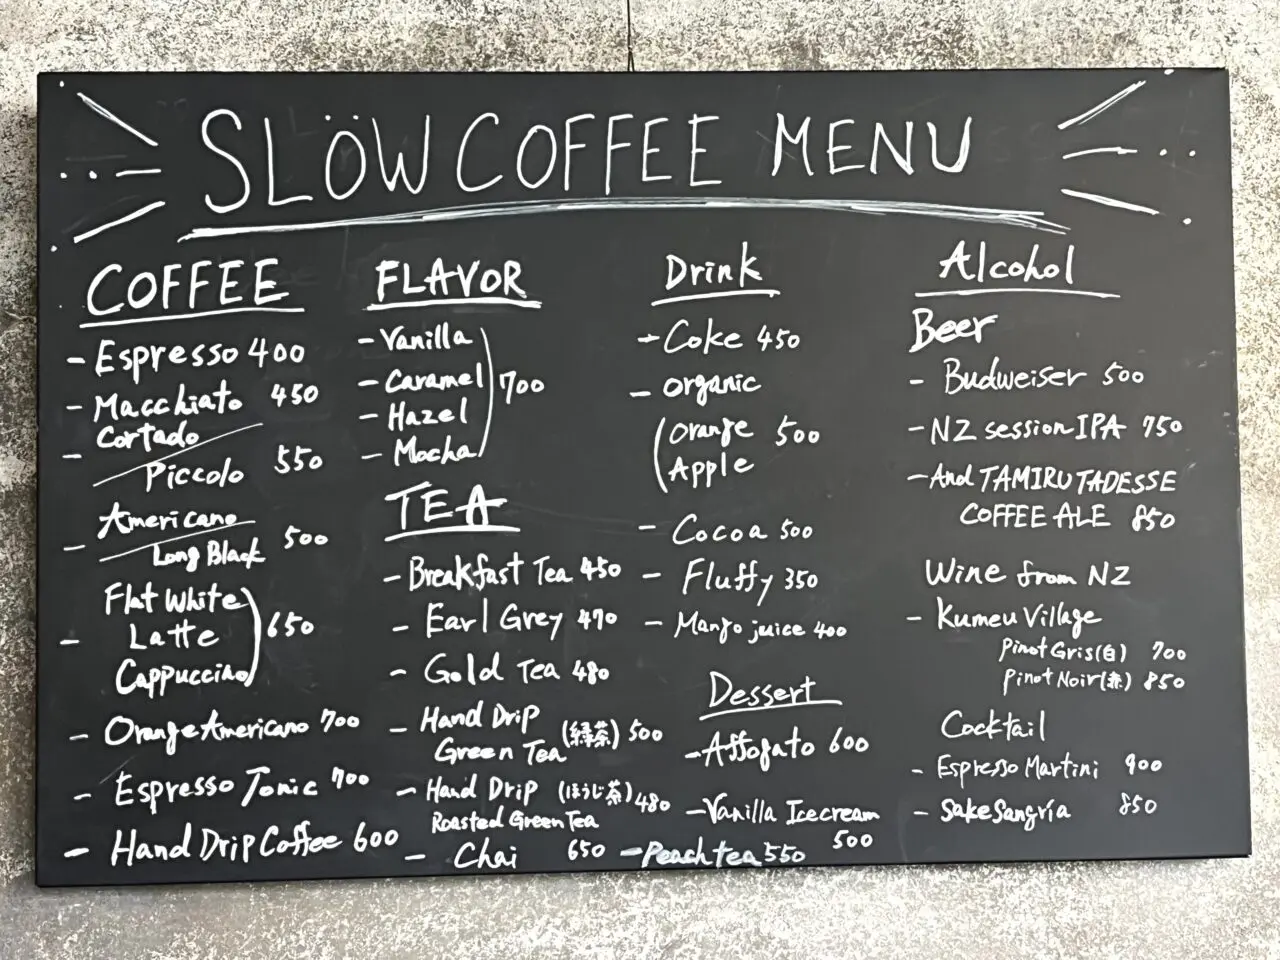 SLÖW COFFEE MENU
COFFEE
- Espresso 400
- Macchiato 450
- Cortado
Piccolo 550
- Americano
Long Black 500
Flat White
- Latte 650
Cappuccino
- Orange Americano 700
- Espresso Tonic 700
- Hand Drip Coffee 600
FLAVOR
- Vanilla
- Caramel 700
- Hazel
- Mocha
TEA
- Breakfast Tea 450
- Earl Grey 470
- Gold Tea 480
- Hand Drip
Green Tea (緑茶) 500
- Hand Drip (ほうじ茶) 480
Roasted Green Tea
- Chai 650
- Peach tea 550
Drink
- Coke 450
- Organic
(Orange 500
Apple
- Cocoa 500
- Fluffy 350
- Mango juice 400
Dessert
- Affogato 600
- Vanilla Icecream
500
Alcohol
Beer
- Budweiser 500
- NZ session IPA 750
- And TAMIRU TADESSE
COFFEE ALE 850
Wine from NZ
- Kumeu Village
Pinot Gris(白) 700
Pinot Noir(赤) 850
Cocktail
- Espresso Martini 900
- Sake Sangria 850